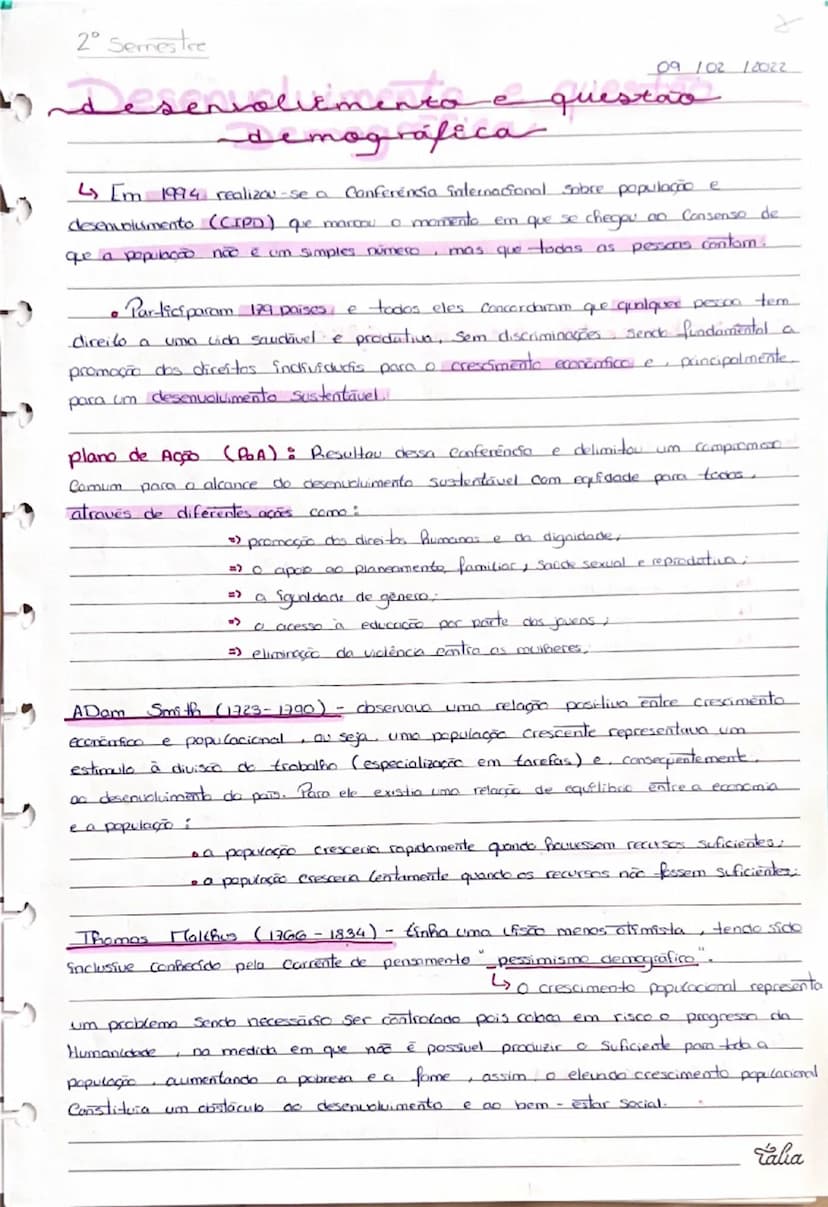 2º Semestre
09 / 02 / 2022
Desenvolvimento e questão
demográfica
↳ Em 1994 realizou-se a Conferência internacional sobre população e
desenvolvimento (CIPD) que marcou o momento em que se chegou ao Consenso de
que a população não é um simples número, mas que todas as pessoas contam.
• Participaram 179 países e todos eles concordaram que qualquer pessoa tem
direito a uma vida saudável e produtiva, sem discriminações, sendo fundamental a
promoção dos direitos individuais para o crescimento económico e, principalmente
para um desenvolvimento sustentável.
plano de Ação (PoA): Resultou dessa conferência e delimitou um compromisso
Comum para o alcance do desenvolvimento sustentável com equidade para todos,
através de diferentes ações como:
=> promoção dos direitos humanos e da dignidade;
=> o apoio ao planeamento familiar, saúde sexual e reprodutiva;
=> a igualdade de género;
=> o acesso à educação por parte dos jovens;
=> eliminação da violência contra as mulheres.
ADam Smith (1723-1790) - observava uma relação positiva entre crescimento
económico e populacional, ou seja, uma população crescente representava um
estímulo à divisão do trabalho (especialização em tarefas) e, consequentemente,
ao desenvolvimento do país. Para ele existia uma relação de equilíbrio entre a economia
e a população:
• a população cresceria rapidamente quando houvessem recursos suficientes;
• a população crescera lentamente quando os recursos não fossem suficientes;
Thomas Malthus (1766-1834) - tinha uma visão menos otimista, tendo sido
inclusive conhecido pela corrente de pensamento "pessimismo demográfico".
↳ o crescimento populacional representa
um problema sendo necessário ser controlado pois coloca em risco o progresso da
Humanidade, na medida em que não é possível produzir o suficiente para toda a
população, aumentando a pobreza e a fome, assim, o elevado crescimento populacional
Constituia um obstáculo ao desenvolvimento e ao bem-estar social.
Tália